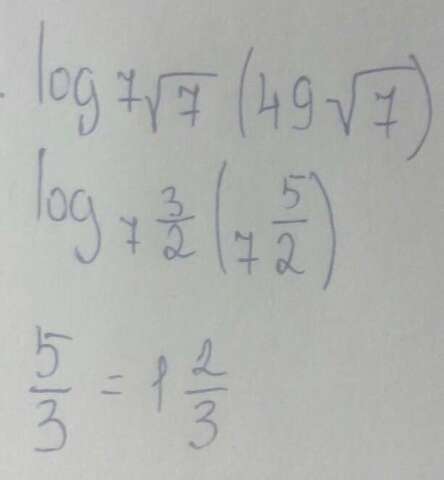 log 7√7 (49√7)
log 7 3/2 (7 5/2)
5/3 = 1 2/3